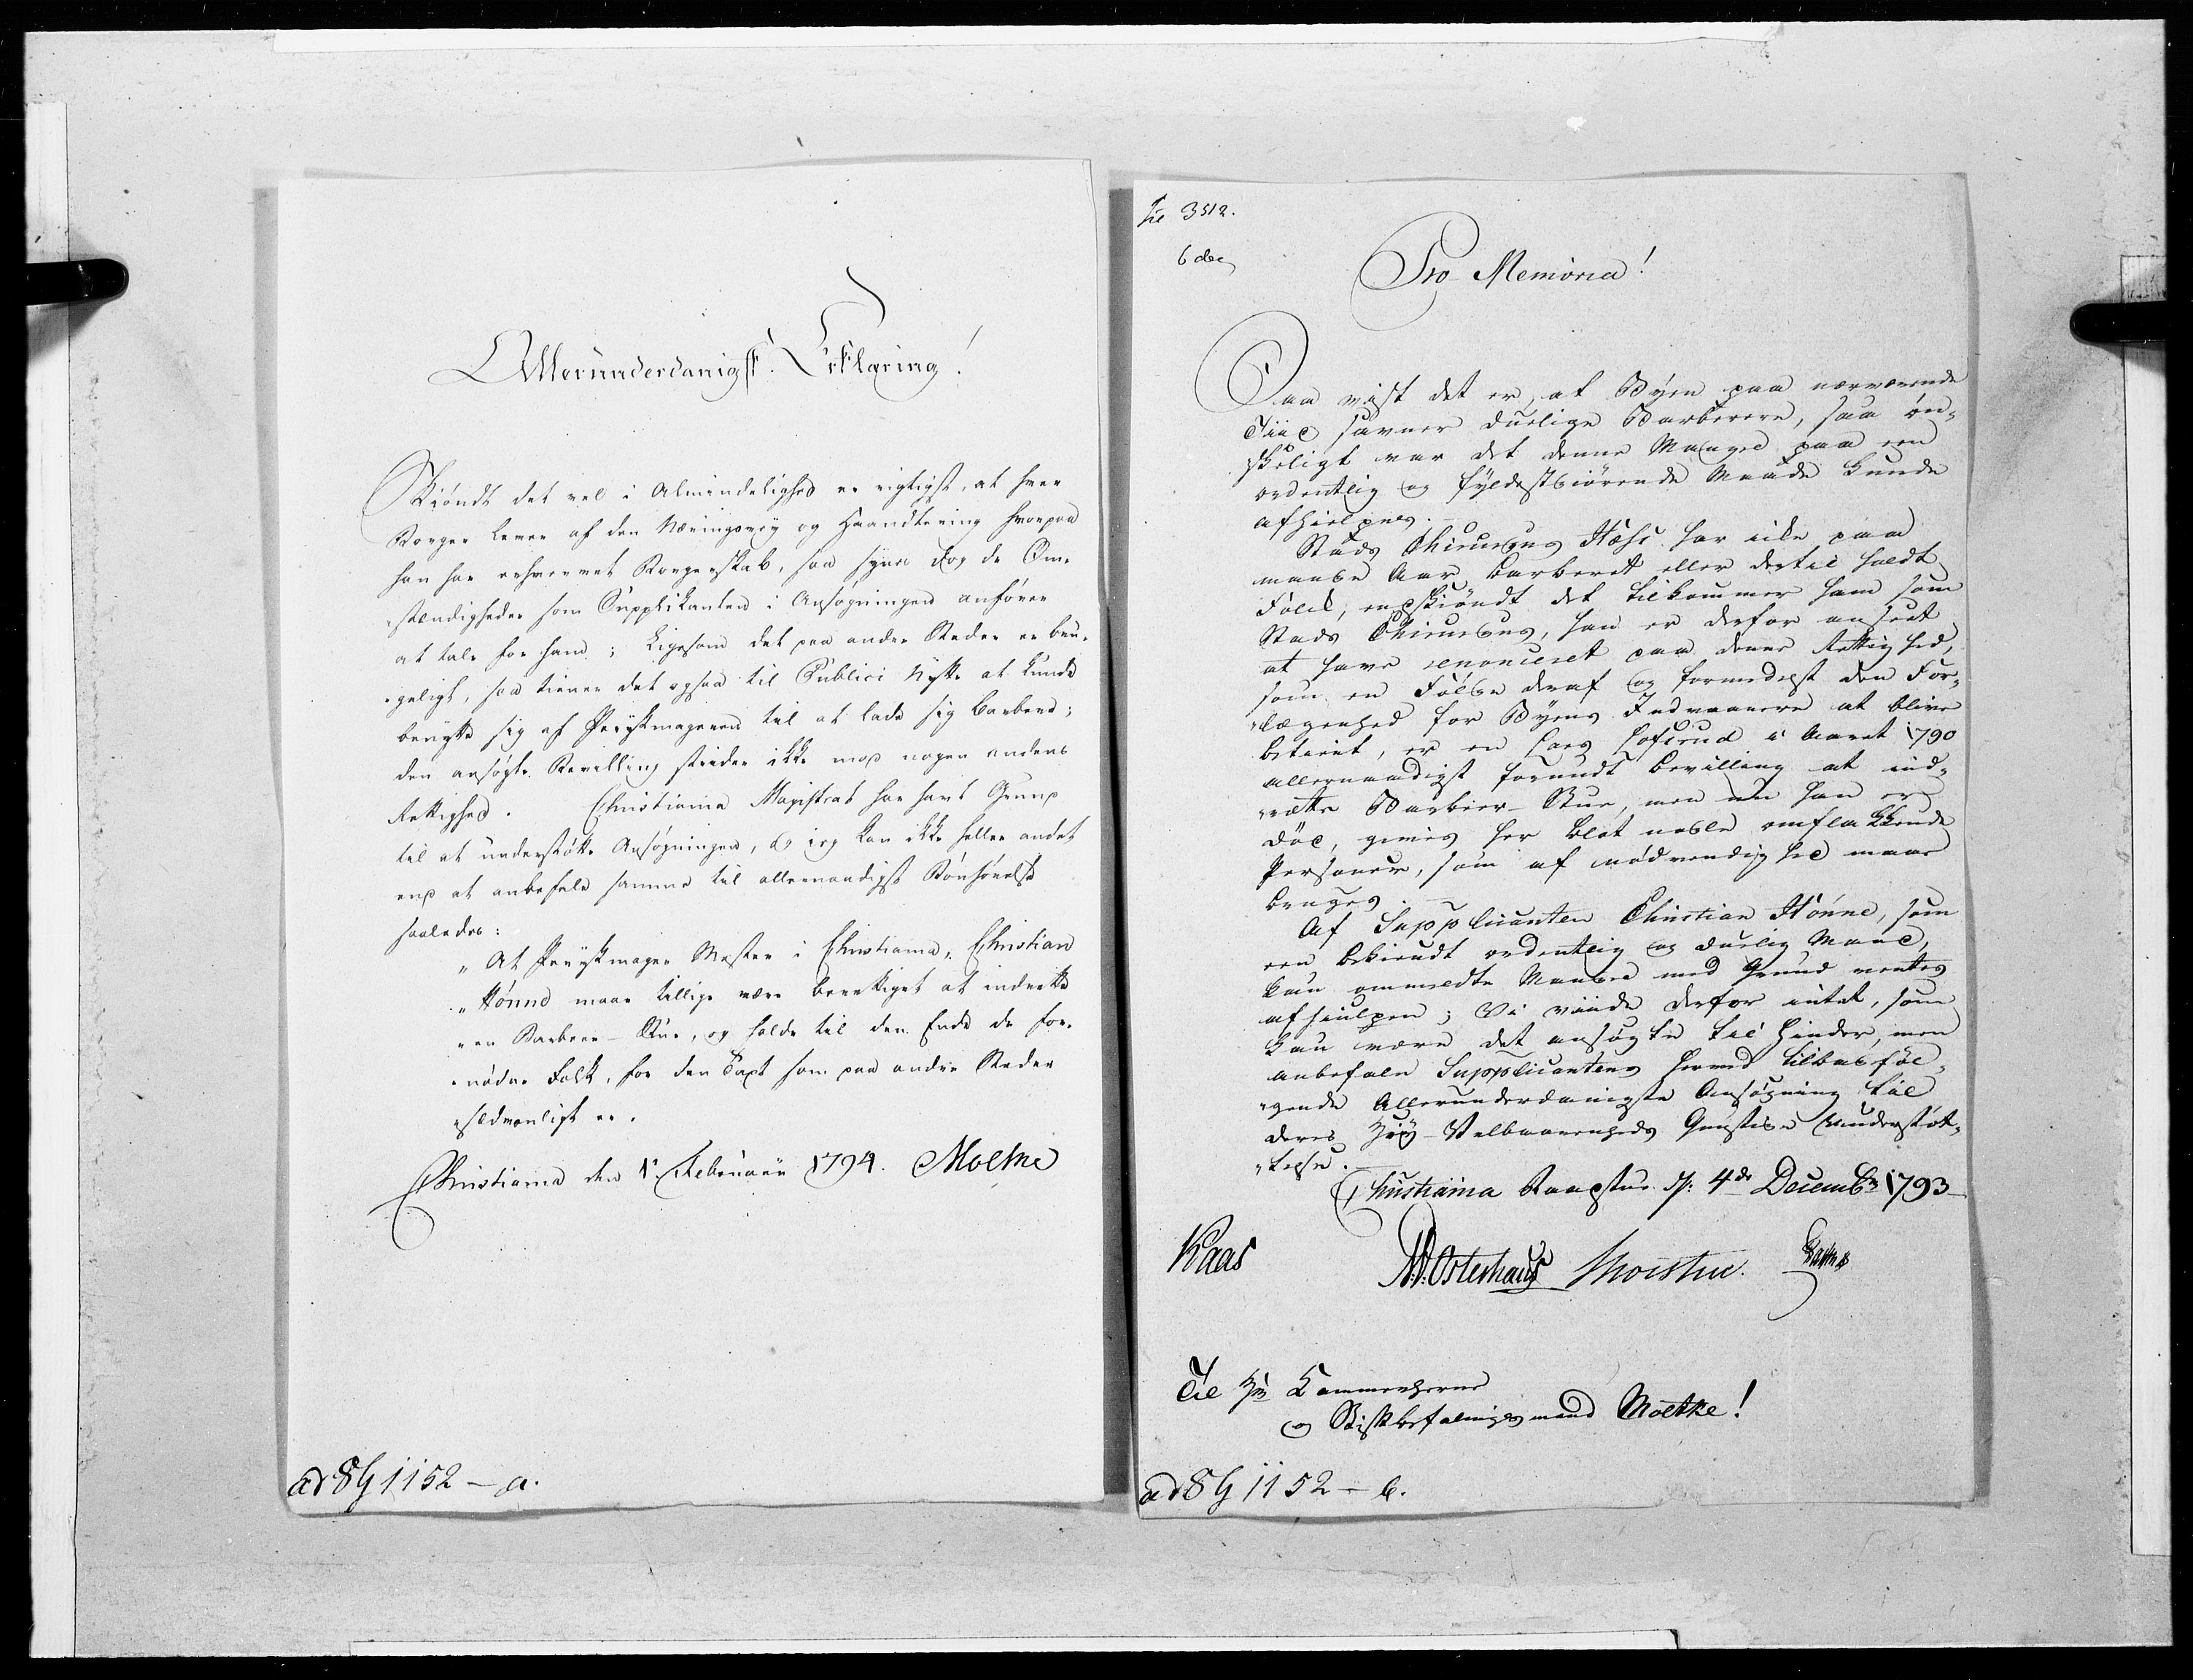 Allerunderdanigst Erklæring!
Skiöndt det vel i Almindelighed er rigtigst, at hver
Borger lever af den Næringsvey og Haandtering hvorpaa
han har erhvervet Borgerskab, saa synes dog de Om-
stændigheder som Supplikanten i Ansøgningen anfører
at tale for ham; Ligesom det paa andre Steder er bru-
geligt, saa tiener det ogsaa til Publici Nytte at kunde
benytte sig af Perykmageren til at lade sig barbere;
den ansøgte Bevilling strider ikke mod nogen andens
Rettighed. Christiania Magistrat har havt Grund
til at understøtte Ansøgningen, og ieg kan ikke heller andet
end at anbefale samme til allernaadigst Bønhørelse
saaledes:
"At Perykmager Mester i Christiania, Christian
"Hønne maae tillige være berettiget at indrette
"en Barbeer-Stue, og holde til den Ende de for-
"nødne Folk, for den Taxt som paa andre Steder
"sædvanligt er.
Christiania den 1. Februarii 1794. Moltke
ad 8G 1152 - a.
Til 3512.
6 dec
Pro Memoria!
Saa vist det er, at Byen paa nærværende
Tiid savner duelige Barberere, saa øn-
skeligt var det denne Mangel paa een
ordentlig og fyldestgiørende Maade kunde
afhielpes.
Stads Chirurgus Hæhs har ikke paa
mange Aar barberet eller dertil holdt
Folck, endskiøndt det tilkommer ham som
Stads Chirurgus, han er derfor anseet
at have renonceret paa denne Rettighed,
som en Følge deraf og formedelst den For-
"lægenhed for Byens Indvaanere at blive
betient, er en Lars Lofsrud i Aaret 1790
allernaadigst forundt bevilling at ind-
"rætte Barbier-Stue, men nu han er
død, gives her blot nogle omflakkende
Personer, som af nødvendighed maae
bruges.
Af Supplicanten Christian Hønne, som
een bekiendt ordentlig og duelig Mand,
kan ommeldte Mangel med Grund ventes
afhiulpen; Vi viide derfor intet, som
kan være det ansøgte til Hinder, men
anbefale Supplicantens herved tilbageføl-
"gende Allerunderdanigste Ansøgning til
Deres Høy-Velbaarenheds Gunstige Understøt-
"telse.
Christiania Raadstue d: 4de Decembr 1793
Kaas Osterhaus Thorstus.
Til Hr Kammerherre
og Stiftbefalingsmand Moltke!
ad 8G 1152 - b.